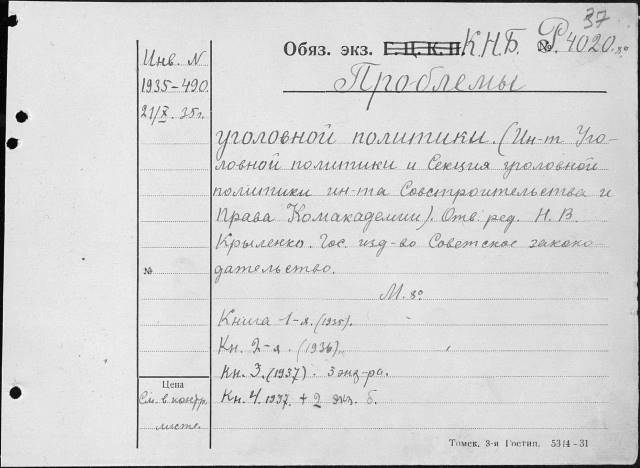 37
Инв. N
1935-490
21/X. 35г.
Обяз. экз. Г.Ц.К.П. К.Н.Б. № Р. 4020. 8°
Проблемы
уголовной политики. (Ин-т Уго-
ловной политики и Секция уголовной
политики ин-та Совстроительства и
Права Комакадемии). Отв. ред. Н. В.
Крыленко. Гос. изд-во Советское законо-
дательство.
№
М. 8°
Книга 1-я. (1935).
Кн. 2-я. (1936).
Кн. 3. (1937). 3 экз-ра.
Кн. 4. 1937. + 2 экз. б.
Цена
См. в контр.
листе.
Томск, 3-я Гостип. 5314-31